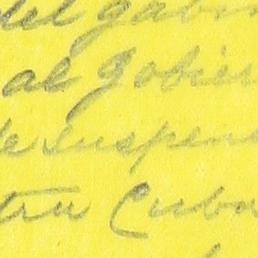 del gabin
al gobier
de suspen
tra Cuba